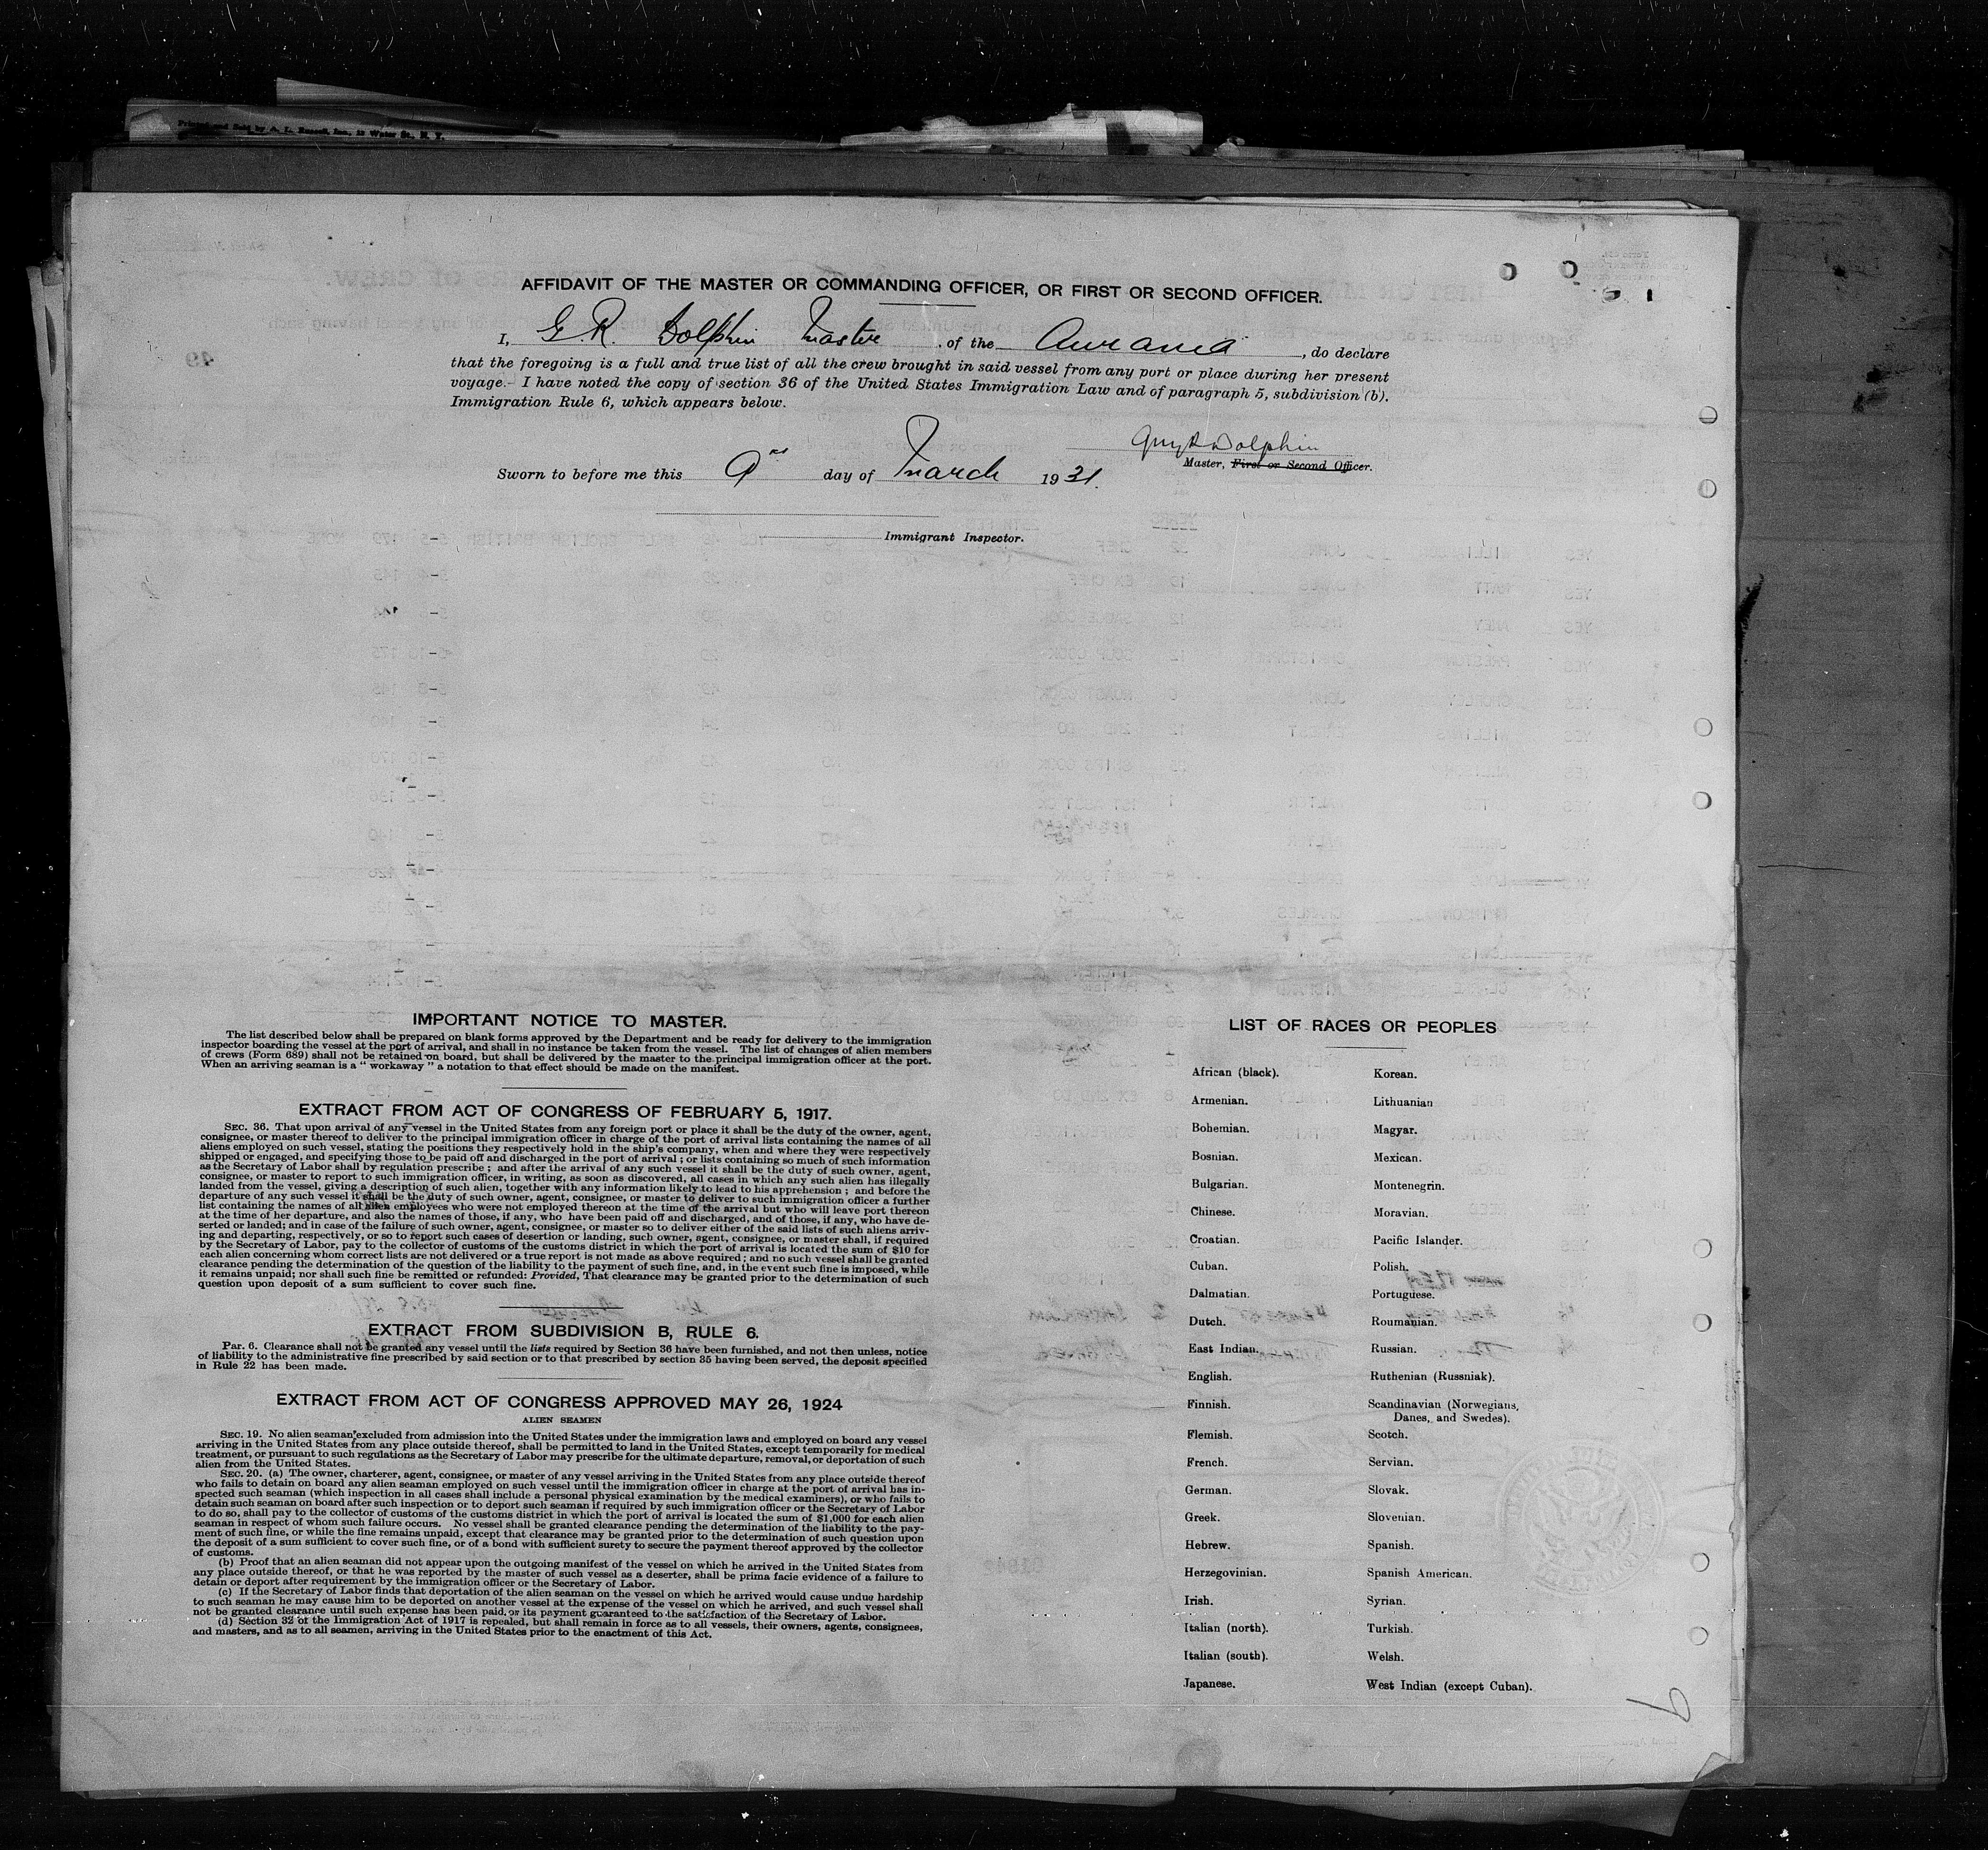 Printed and Sold by A. L. Russell, Inc., 12 Water St., N. Y.
AFFIDAVIT OF THE MASTER OR COMMANDING OFFICER, OR FIRST OR SECOND OFFICER.
I, G. R. Dolphin Master of the Aurania, do declare
that the foregoing is a full and true list of all the crew brought in said vessel from any port or place during her present
voyage. I have noted the copy of section 36 of the United States Immigration Law and of paragraph 5, subdivision (b).
Immigration Rule 6, which appears below.
Guy R Dolphin
Master, First or Second Officer.
Sworn to before me this 9 day of March 1931.
Immigrant Inspector.
IMPORTANT NOTICE TO MASTER.
The list described below shall be prepared on blank forms approved by the Department and be ready for delivery to the immigration
inspector boarding the vessel at the port of arrival, and shall in no instance be taken from the vessel. The list of changes of alien members
of crews (Form 689) shall not be retained on board, but shall be delivered by the master to the principal immigration officer at the port.
When an arriving seaman is a " workaway " a notation to that effect should be made on the manifest.
EXTRACT FROM ACT OF CONGRESS OF FEBRUARY 5, 1917.
SEC. 36. That upon arrival of any vessel in the United States from any foreign port or place it shall be the duty of the owner, agent,
consignee, or master thereof to deliver to the principal immigration officer in charge of the port of arrival lists containing the names of all
aliens employed on such vessel, stating the positions they respectively hold in the ship's company, when and where they were respectively
shipped or engaged, and specifying those to be paid off and discharged in the port of arrival ; or lists containing so much of such information
as the Secretary of Labor shall by regulation prescribe ; and after the arrival of any such vessel it shall be the duty of such owner, agent,
consignee, or master to report to such immigration officer, in writing, as soon as discovered, all cases in which any such alien has illegally
landed from the vessel, giving a description of such alien, together with any information likely to lead to his apprehension ; and before the
departure of any such vessel it shall be the duty of such owner, agent, consignee, or master to deliver to such immigration officer a further
list containing the names of all alien employees who were not employed thereon at the time of the arrival but who will leave port thereon
at the time of her departure, and also the names of those, if any, who have been paid off and discharged, and of those, if any, who have de-
serted or landed; and in case of the failure of such owner, agent, consignee, or master so to deliver either of the said lists of such aliens arriv-
ing and departing, respectively, or so to report such cases of desertion or landing, such owner, agent, consignee, or master shall, if required
by the Secretary of Labor, pay to the collector of customs of the customs district in which the port of arrival is located the sum of $10 for
each alien concerning whom correct lists are not delivered or a true report is not made as above required ; and no such vessel shall be granted
clearance pending the determination of the question of the liability to the payment of such fine, and, in the event such fine is imposed, while
it remains unpaid; nor shall such fine be remitted or refunded: Provided, That clearance may be granted prior to the determination of such
question upon deposit of a sum sufficient to cover such fine.
EXTRACT FROM SUBDIVISION B, RULE 6.
PAR. 6. Clearance shall not be granted any vessel until the lists required by Section 36 have been furnished, and not then unless, notice
of liability to the administrative fine prescribed by said section or to that prescribed by section 35 having been served, the deposit specified
in Rule 22 has been made.
EXTRACT FROM ACT OF CONGRESS APPROVED MAY 26, 1924
ALIEN SEAMEN
SEC. 19. No alien seaman excluded from admission into the United States under the immigration laws and employed on board any vessel
arriving in the United States from any place outside thereof, shall be permitted to land in the United States, except temporarily for medical
treatment, or pursuant to such regulations as the Secretary of Labor may prescribe for the ultimate departure, removal, or deportation of such
alien from the United States.
SEC. 20. (a) The owner, charterer, agent, consignee, or master of any vessel arriving in the United States from any place outside thereof
who fails to detain on board any alien seaman employed on such vessel until the immigration officer in charge at the port of arrival has in-
spected such seaman (which inspection in all cases shall include a personal physical examination by the medical examiners), or who fails to
detain such seaman on board after such inspection or to deport such seaman if required by such immigration officer or the Secretary of Labor
to do so, shall pay to the collector of customs of the customs district in which the port of arrival is located the sum of $1,000 for each alien
seaman in respect of whom such failure occurs. No vessel shall be granted clearance pending the determination of the liability to the pay-
ment of such fine, or while the fine remains unpaid, except that clearance may be granted prior to the determination of such question upon
the deposit of a sum sufficient to cover such fine, or of a bond with sufficient surety to secure the payment thereof approved by the collector
of customs.
(b) Proof that an alien seaman did not appear upon the outgoing manifest of the vessel on which he arrived in the United States from
any place outside thereof, or that he was reported by the master of such vessel as a deserter, shall be prima facie evidence of a failure to
detain or deport after requirement by the immigration officer or the Secretary of Labor.
(c) If the Secretary of Labor finds that deportation of the alien seaman on the vessel on which he arrived would cause undue hardship
to such seaman he may cause him to be deported on another vessel at the expense of the vessel on which he arrived, and such vessel shall
not be granted clearance until such expense has been paid, or its payment guaranteed to the satisfaction of the Secretary of Labor.
(d) Section 32 of the Immigration Act of 1917 is repealed, but shall remain in force as to all vessels, their owners, agents, consignees,
and masters, and as to all seamen, arriving in the United States prior to the enactment of this Act.
LIST OF RACES OR PEOPLES
African (black).
Armenian.
Bohemian.
Bosnian.
Bulgarian.
Chinese.
Croatian.
Cuban.
Dalmatian.
Dutch.
East Indian.
English.
Finnish.
Flemish.
French.
German.
Greek.
Hebrew.
Herzegovinian.
Irish.
Italian (north).
Italian (south).
Japanese.
Korean.
Lithuanian
Magyar.
Mexican.
Montenegrin.
Moravian.
Pacific Islander.
Polish.
Portuguese.
Roumanian.
Russian.
Ruthenian (Russniak).
Scandinavian (Norwegians,
Danes, and Swedes).
Scotch.
Servian.
Slovak.
Slovenian.
Spanish.
Spanish American.
Syrian.
Turkish.
Welsh.
West Indian (except Cuban).